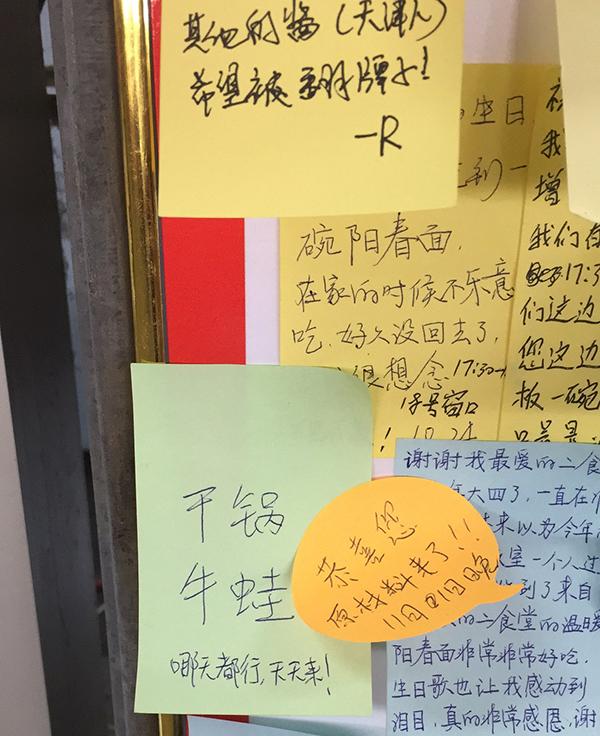 其他的酱(天津人)
希望被翻牌子!
-R
生日
到一
碗阳春面,
在家的时候不乐意
吃,好久没回去了,
很想念 17:30
18号窗口
! 10.24
我
增
我们在
17:3
们这边
您这边
板一碗
干锅
牛蛙
哪天都行,天天来!
恭喜您
原材料来了!!
11月01日晚
谢谢我最爱的二食
年大四了,一直在
来以为今年
室一个人过
到了来自
的二食堂的温暖
阳春面非常非常好吃.
生日歌也让我感动到
泪目,真的非常感恩,谢